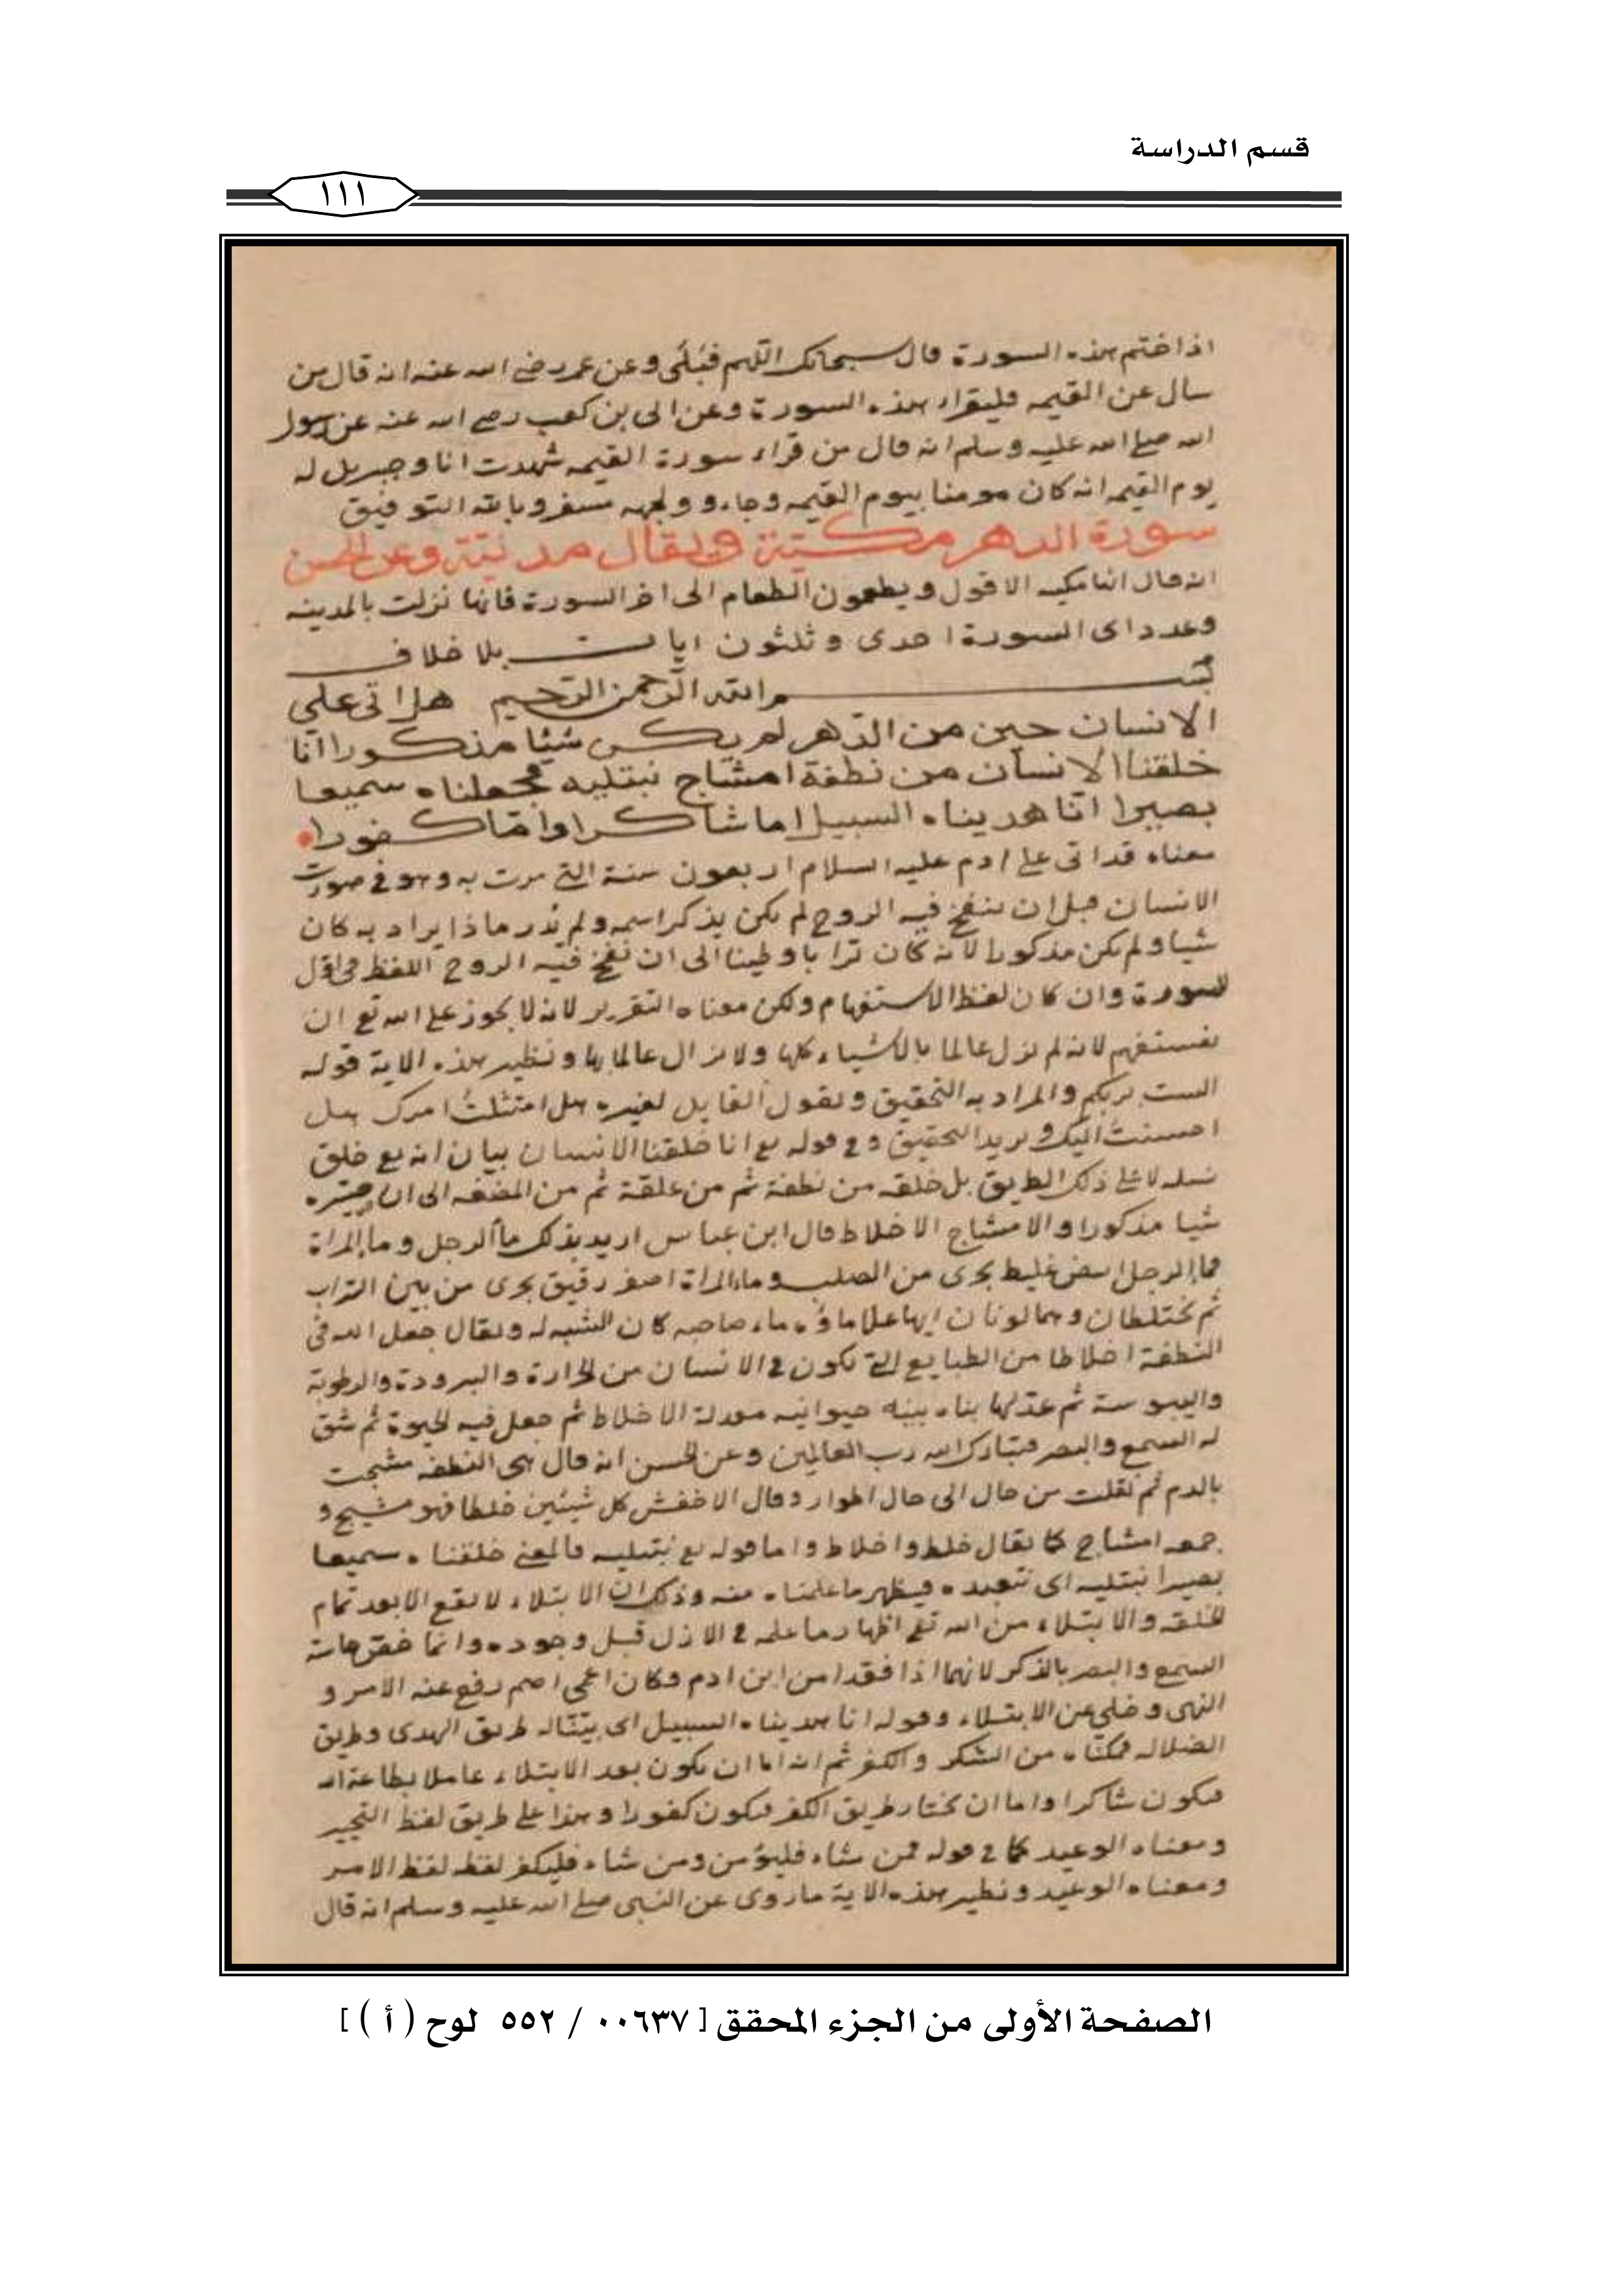 قسم الدراسة
١١١
اذا ختم هذه السورة قال سبحانك اللهم فبلى وعن عمر رضي الله عنه انه قال من
سال عن القيمه فليقراء هذه السورة وعن ابى بن كعب رضي الله عنه عن رسول
الله صلي الله عليه وسلم انه قال من قراء سورة القيمه شهدت انا وجبريل له
يوم القيمه انه كان مومنا بيوم القيمه وجاء ووجهه مسفر وبالله التوفيق
سورة الدهر مكية ويقال مدنية وعن الحسن
انه قال انها مكيه الا قوله ويطعمون الطعام الى اخر السورة فانها نزلت بالمدينه
وعدد اى السورة احدى وثلثون ايات بلا خلاف
بسم الله الرحمن الرحيم هل اتى علي
الانسان حين من الدهر لم يكن شيئا مذكورا انا
خلقنا الانسان من نطفة امشاج نبتليه فجعلناه سميعا
بصيرا انا هديناه السبيل اما شاكرا واما كفورا
معناه قد اتى على ادم عليه السلام اربعون سنة التي مرت به وهو في صورت
الانسان قبل ان ينفخ فيه الروح لم يكن يذكر اسمه ولم يدر ماذا يراد به كان
شيا ولم يكن مذكورا لانه كان ترابا وطينا الى ان نفخ فيه الروح اللفظ فى اول
السورة وان كان لفظ الاستفهام ولكن معناه التقرير لانه لا يجوز على الله تع ان
يستفهم لانه لم يزل عالما بالاشياء كلها ولا يزال عالما بها ونظير هذه الاية قوله
الست بربكم والمراد به التحقيق ويقول القايل لغيره هل امتثلت امرك هل
احسنت اليك ويريد التحقيق وفي قوله تع انا خلقنا الانسان بيان انه تع خلق
نسله لا على ذلك الطريق بل خلقه من نطفة ثم من علقة ثم من المضغه الى ان صيره
شيا مذكورا والامشاج الاخلاط قال ابن عباس اريد بذلك ماء الرجل وماء المراة
فماء الرجل ابيض غليظ يجرى من الصلب وماء المراة اصفر رقيق يجرى من بين التراب
ثم يختلطان وهما لونان ايهما علا ماؤه ماء صاحبه كان الشبه له ويقال جعل الله فى
النطفة اخلاطا من الطبايع التي تكون في الانسان من الحرارة والبرودة والرطوبة
واليبوسة ثم عدلها بناء بنيه حيوانيه معدلة الاخلاط ثم جعل فيه الحيوة ثم شق
له السمع والبصر فتبارك الله رب العالمين وعن الحسن انه قال هى النطفه مشجت
بالدم ثم نقلت من حال الى حال اطوار وقال الاخفش كل شيئين خلطا فهو مشيج و
جمعه امشاج كما يقال خلط واخلاط واما قوله تع نبتليه فالمعنى خلقناه سميعا
بصيرا نبتليه اى نتعبده فيظهر ما علمناه منه وذلك ان الابتلاء لا يقع الا بعد تمام
الخلقه والابتلاء من الله تع اظهار ما علمه في الازل قبل وجوده وانما خص حاسة
السمع والبصر بالذكر لانهما اذا فقدا من ابن ادم وكان اعمى اصم رفع عنه الامر و
النهى وخلي عن الابتلاء وقوله انا هديناه السبيل اى بينا له طريق الهدى وطريق
الضلاله فمكناه من الشكر والكفر ثم انه اما ان يكون بعد الابتلاء عاملا بطاعة الله
فيكون شاكرا واما ان يختار طريق الكفر فيكون كفورا وهذا على طريق لفظ التخيير
ومعناه الوعيد كما في قوله فمن شاء فليؤمن ومن شاء فليكفر لفظه لفظ الامر
ومعناه الوعيد ونظير هذه الاية ما روى عن النبى صلي الله عليه وسلم انه قال
الصفحة الأولى من الجزء المحقق [ ٠٠٦٣٧ / ٥٥٢ لوح ( أ ) ]